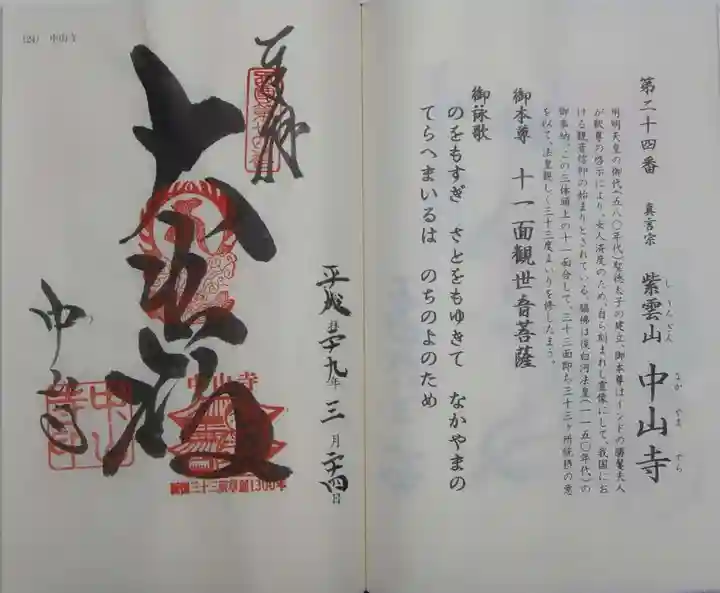 第二十四番 真言宗 紫雲山 中山寺
しうんざん
なか やま でら
用明天皇の御代(五八〇年代)聖徳太子の建立、御本尊はインドの勝鬘夫人
が釈尊の啓示により、女人済度のため、自ら刻まれし霊像にして、我国にお
ける観音信仰の始まりとされている。脇佛は後白河法皇(一一五〇年代)の
御奉納、この三体頭上の十一面合して、三十三面即ち三十三ヶ所統摂の意
を以て、法皇親しく三十三度まいりを修したまう。
御本尊 十一面觀世音菩薩
御詠歌
のをもすぎ さとをもゆきて なかやまの
てらへまいるは のちのよのため
(24) 中山寺
奉拝
大悲殿
平成 二十九年 三月 二十四日
中山寺
中山寺
中山寺
西国三十三所草創1300年